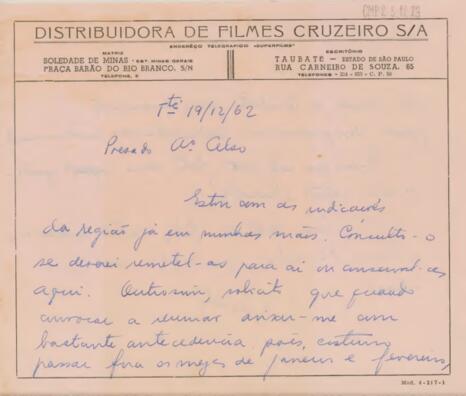 CMP 2.3.10.23
DISTRIBUIDORA DE FILMES CRUZEIRO S/A
ENDERÊÇO TELEGRAFICO «SUPERFILMS»
MATRIZ
SOLEDADE DE MINAS - EST. MINAS GERAIS
PRAÇA BARÃO DO RIO BRANCO, S/N
TELEFONE, 5
ESCRITÓRIO
TAUBATÉ - ESTADO DE SÃO PAULO
RUA CARNEIRO DE SOUZA, 65
TELEFONES - C. P. 50
Tté 19/12/62
Presado Aº Celso
Estou com as indicações
da região já em minhas mãos. Consulto-o
se deverei remetel-as para ai ou conserval-as
aqui. Outrossim, solicito que quando
convocar a reuniar avisar-me com
bastante antecedencia, pois, costumo
passar fora os mezes de janeiro e fevereiro,
Mod. 4-217-1